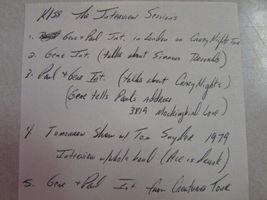 KISS The Interview Sessions
1. Gene + Paul Int. in London on Crazy Nights Tour
2. Gene Int. (talks about Simmons Records)
3. Paul + Gene Int. (talks about Crazy Nights)
(Gene tells Pauls address
3819 Mockingbird Lane)
4 Tomorrow Show w/ Tom Snyder 1979
Interview w/ whole band (Ace is drunk)
5. Gene + Paul Int from Creatures Tour